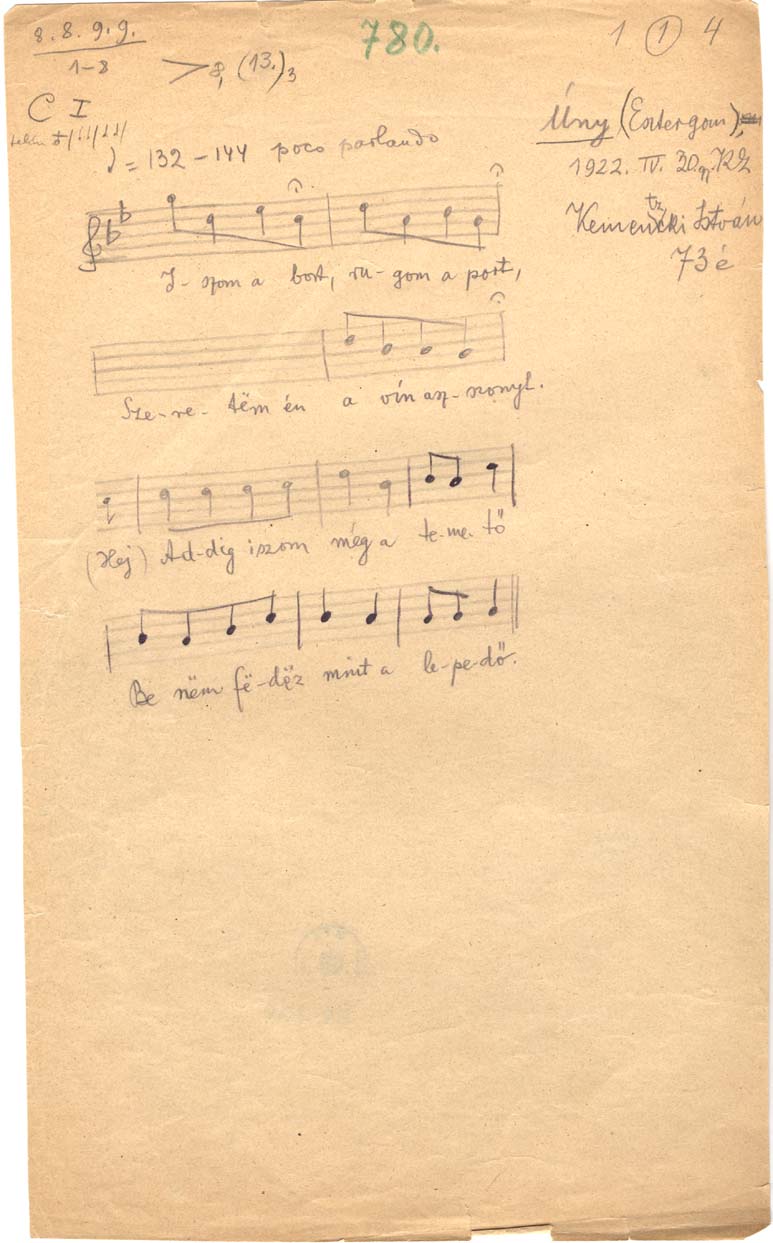 8. 8. 9. 9. 780. 1 1 4
1-8 8, (13.)3
C I
Úny (Esztergom),
♩ = 132 - 144 poco parlando
1922. IV. 30. KZ
tz
Kemencki István
73 é
I- szom a bort, ru- gom a port,
Sze-re-tëm én a vín asz-szonyt.
(Hej) Ad-dig iszom még a te-me-tő
Be nëm fë-dëz mint a le-pe-dő.